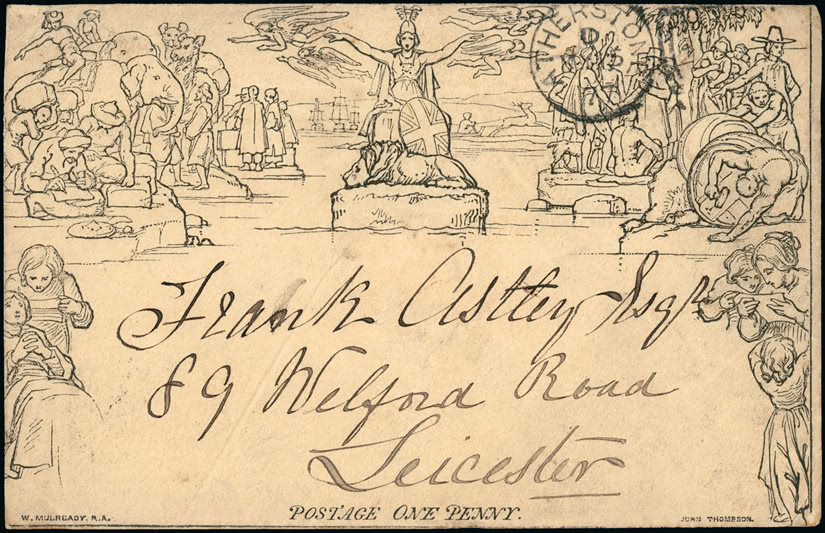 ATHERSTONE
Frank Astley Esqr
89 Welford Road
Leicester
POSTAGE ONE PENNY.
W. MULREADY, R.A.
JOHN THOMPSON.